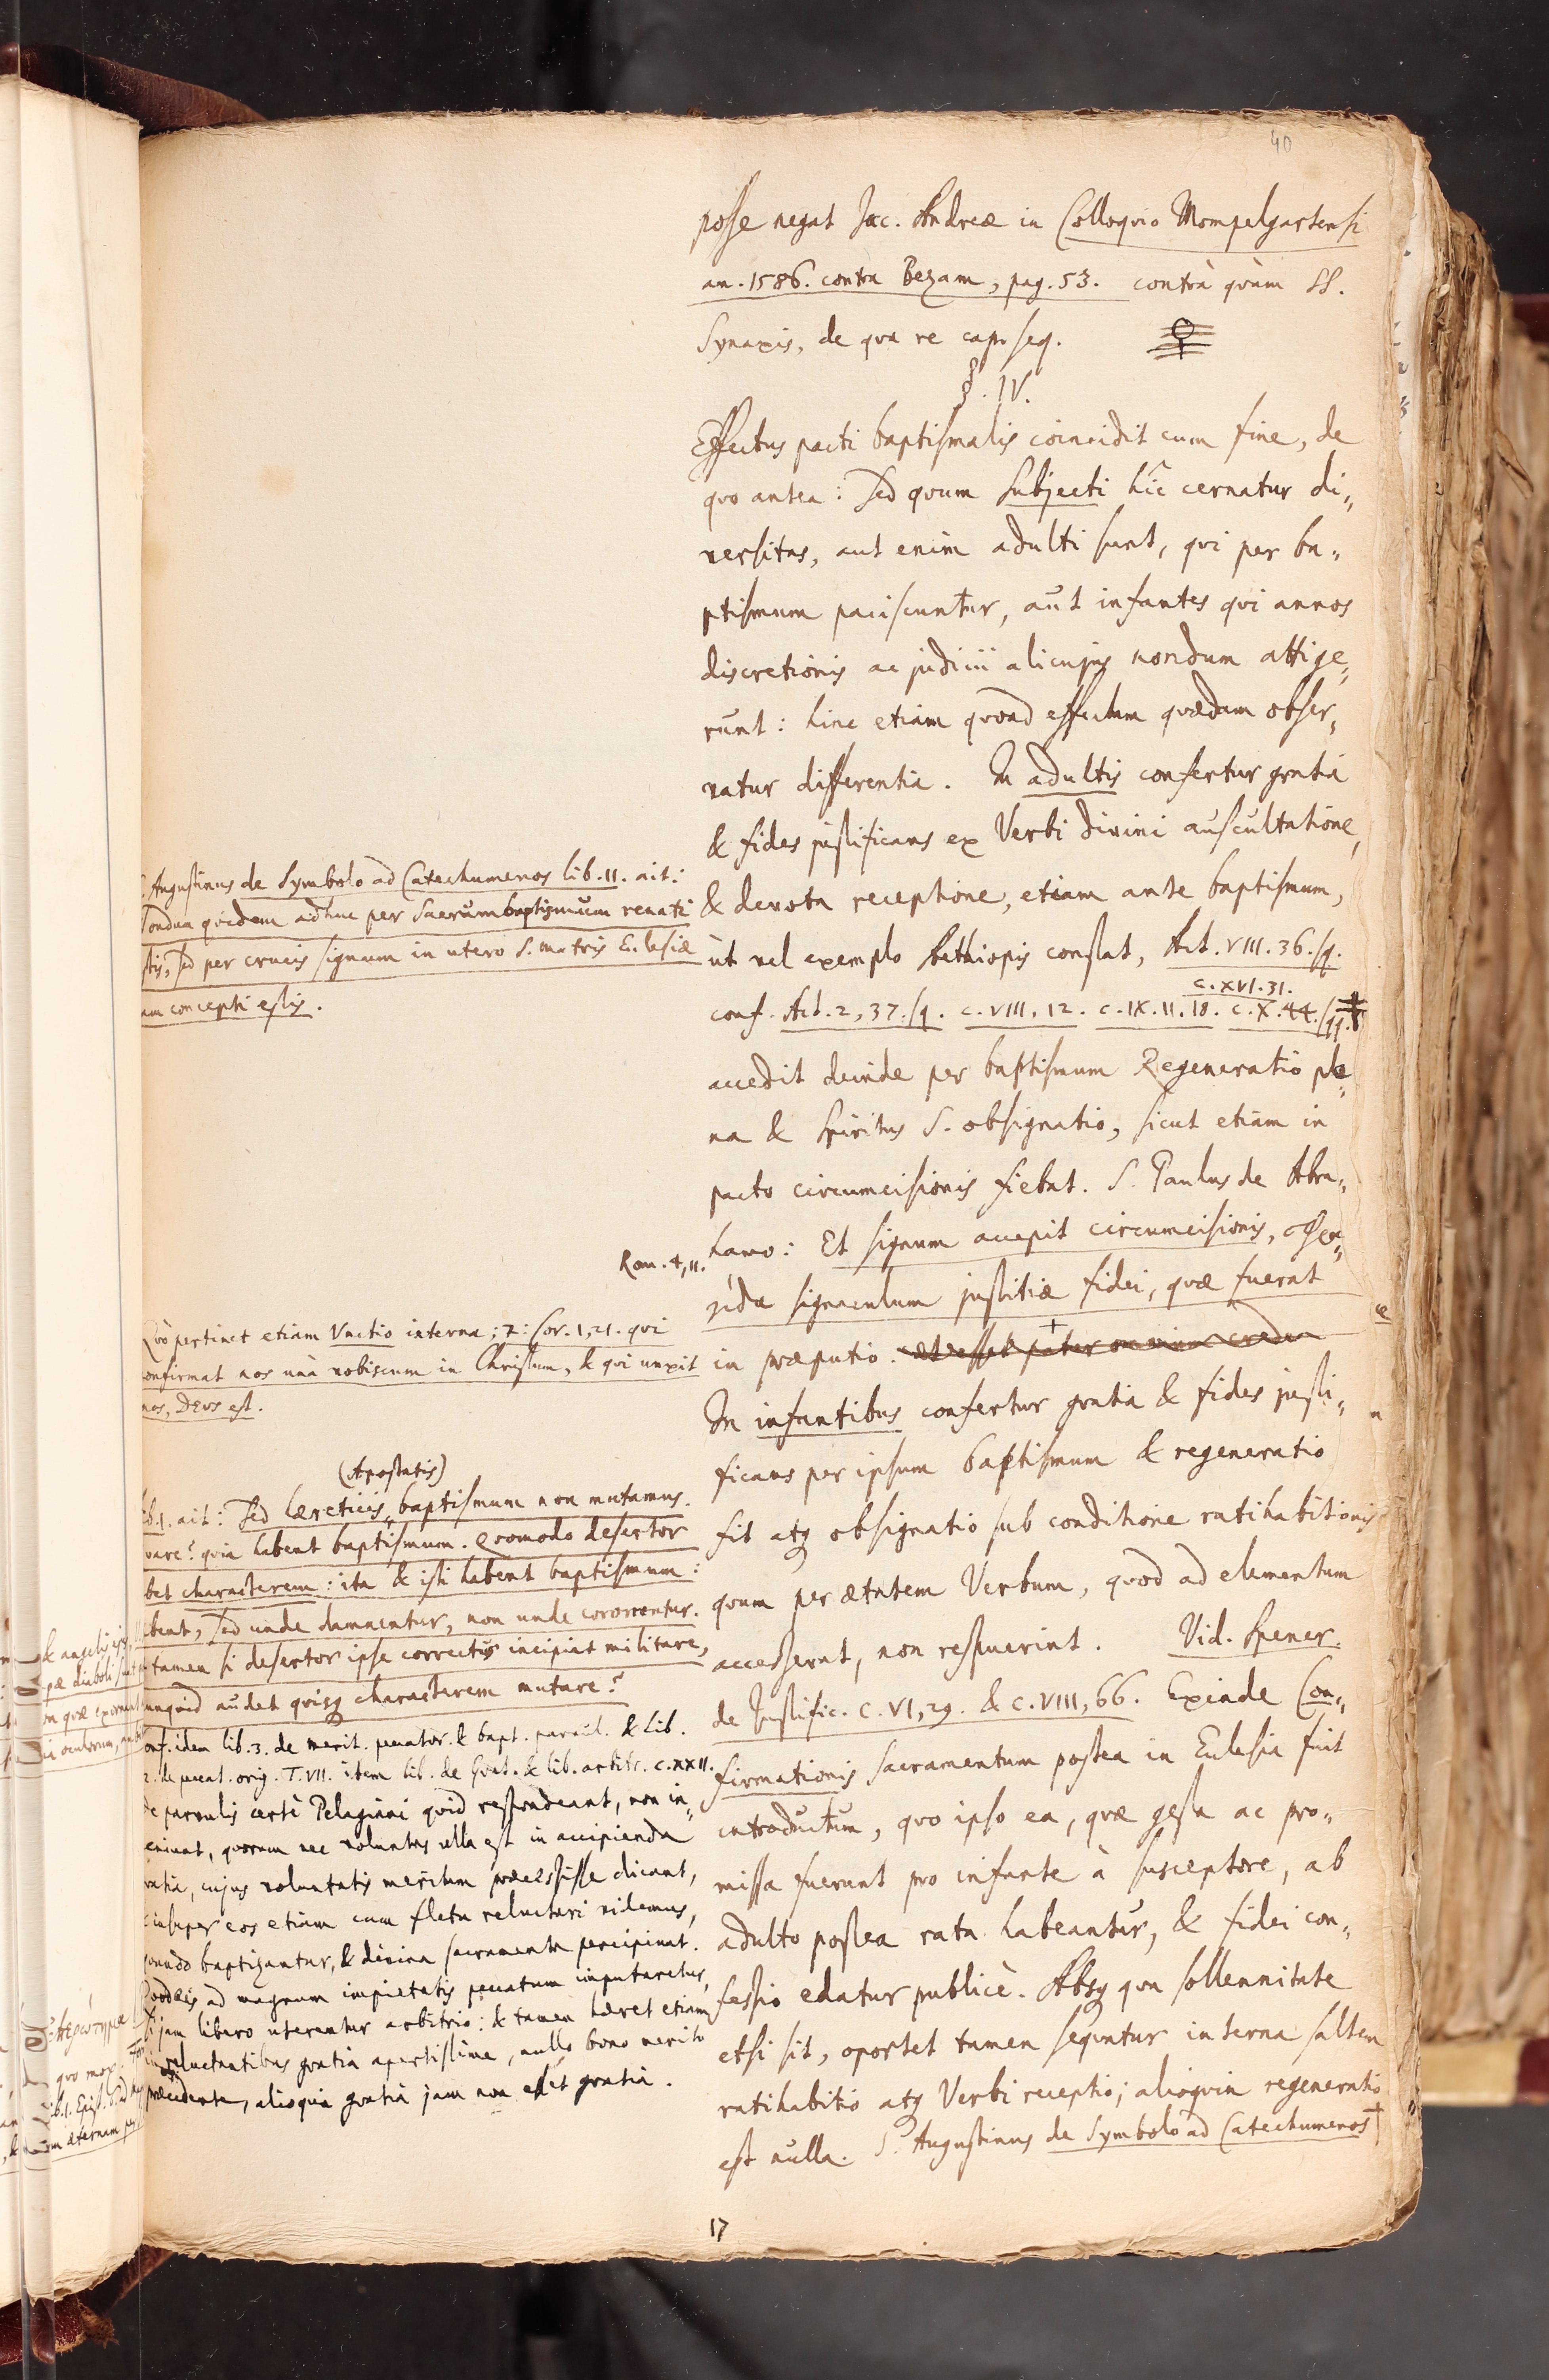 40
posse negat Jac. Andreæ in Colloquio Mompelgartensi
an. 1586. contra Bezam, pag. 53. contrà qvàm SS.
Synaxis, de qva re cap. seq.
§. IV.
Effectus pacti baptismalis coincidit cum fine, de
qvo antea: Sed qvum Subjecti hîc cernatur di„
versitas, aut enim adulti sunt, qvi per ba„
ptismum paciscuntur, aut infantes qvi annos
discretionis ac judicii alicujus nondum attige„
runt: hinc etiam qvoad effectum qvædam obser„
vatur differentia. In adultis confertur gratia
& fides justificans ex Verbi divini auscultatione,
& devota receptione, etiam ante baptismum,
ut vel exemplo Aethiopis constat, Act. VIII. 36. sq.
c. XVI. 31.
conf. Act. 2, 37. sq. c. VIII, 12. c. IX. 11. 18. c. X. 44. sqq.
accedit deinde per baptismum Regeneratio ple„
na & Spiritus S. obsignatio, sicut etiam in
pacto circumcisionis fiebat. S. Paulus de Abra„
hamo: Et signum accepit circumcisionis,
signaculum justitiæ fidei, quæ fuerat
in præputio. ut esset pater omnium creden
In infantibus confertur gratia & fides justi„
ficans per ipsum baptismum & regeneratio
fit atq obsignatio sub conditione ratihabitionis
qvum per ætatem Verbum, qvod ad elementum
accesserat, non respuerint. Vid. Spener.
de Justific. C. VI, 29. & C. VIII, 66. Exinde Con„
firmationis Sacramentum postea in Ecclesia fuit
introductum, qvo ipso ea, qvæ gesta ac pro„
missa fuerunt pro infante à susceptore, ab
adulto postea rata habeantur, & fidei con„
fessio edatur publicè. Absq qva sollennitate
etsi sit, oportet tamen seqvatur interna saltem
ratihabitio atq Verbi receptio; alioqvin regeneratio
est nulla. S. Augustinus de Symbolo ad Catechumenos †
17
Augustinus de Symbolo ad Catechumenos lib. II. ait:
ondum qvidem adhuc per Sacrum baptismum renati
stis, sed per crucis signum in utero S. matris Ecclesiæ
am concepti estis.
Rom. 4, 11.
Qvò pertinet etiam Unctio interna; 2. Cor. 1, 21. qvi
onfirmat nos unà vobiscum in Christum, & qvi unxit
nos, DEUS est.
(Apostatis)
ib. 1. ait: Sed hæreticis, baptismum non mutamus.
vare? qvia habent baptismum. Qvomodo desertor
bet characterem: ita & isti habent baptismum:
bent, sed unde damnentur, non unde coronentur.
tamen si desertor ipse correctus incipiat militare,
unqvid audet qvisq characterem mutare?
onf. idem lib. 3. de merit. peccator. & bapt. parvul. & Lib.
2. de peccat. orig. T. VII. item lib. de Grat. & lib. arbitr. C. XXII.
de parvulis certè Pelagiani qvid respondeant, non in„
eniunt, qvorum nec voluntas ulla est in accipienda
ratia, cujus voluntatis meritum præcessisse dicant,
insuper eos etiam cum fletu reluctari videmus,
qvando baptizantur, & divina sacramenta percipiunt.
Qvod eis ad magnum impietatis peccatum imputaretur,
si jam libero uterentur arbitrio: & tamen hæret etiam
in reluctantibus gratia apertissime, nullo bono merito
præcedente, alioqvin gratia jam non esset gratia.